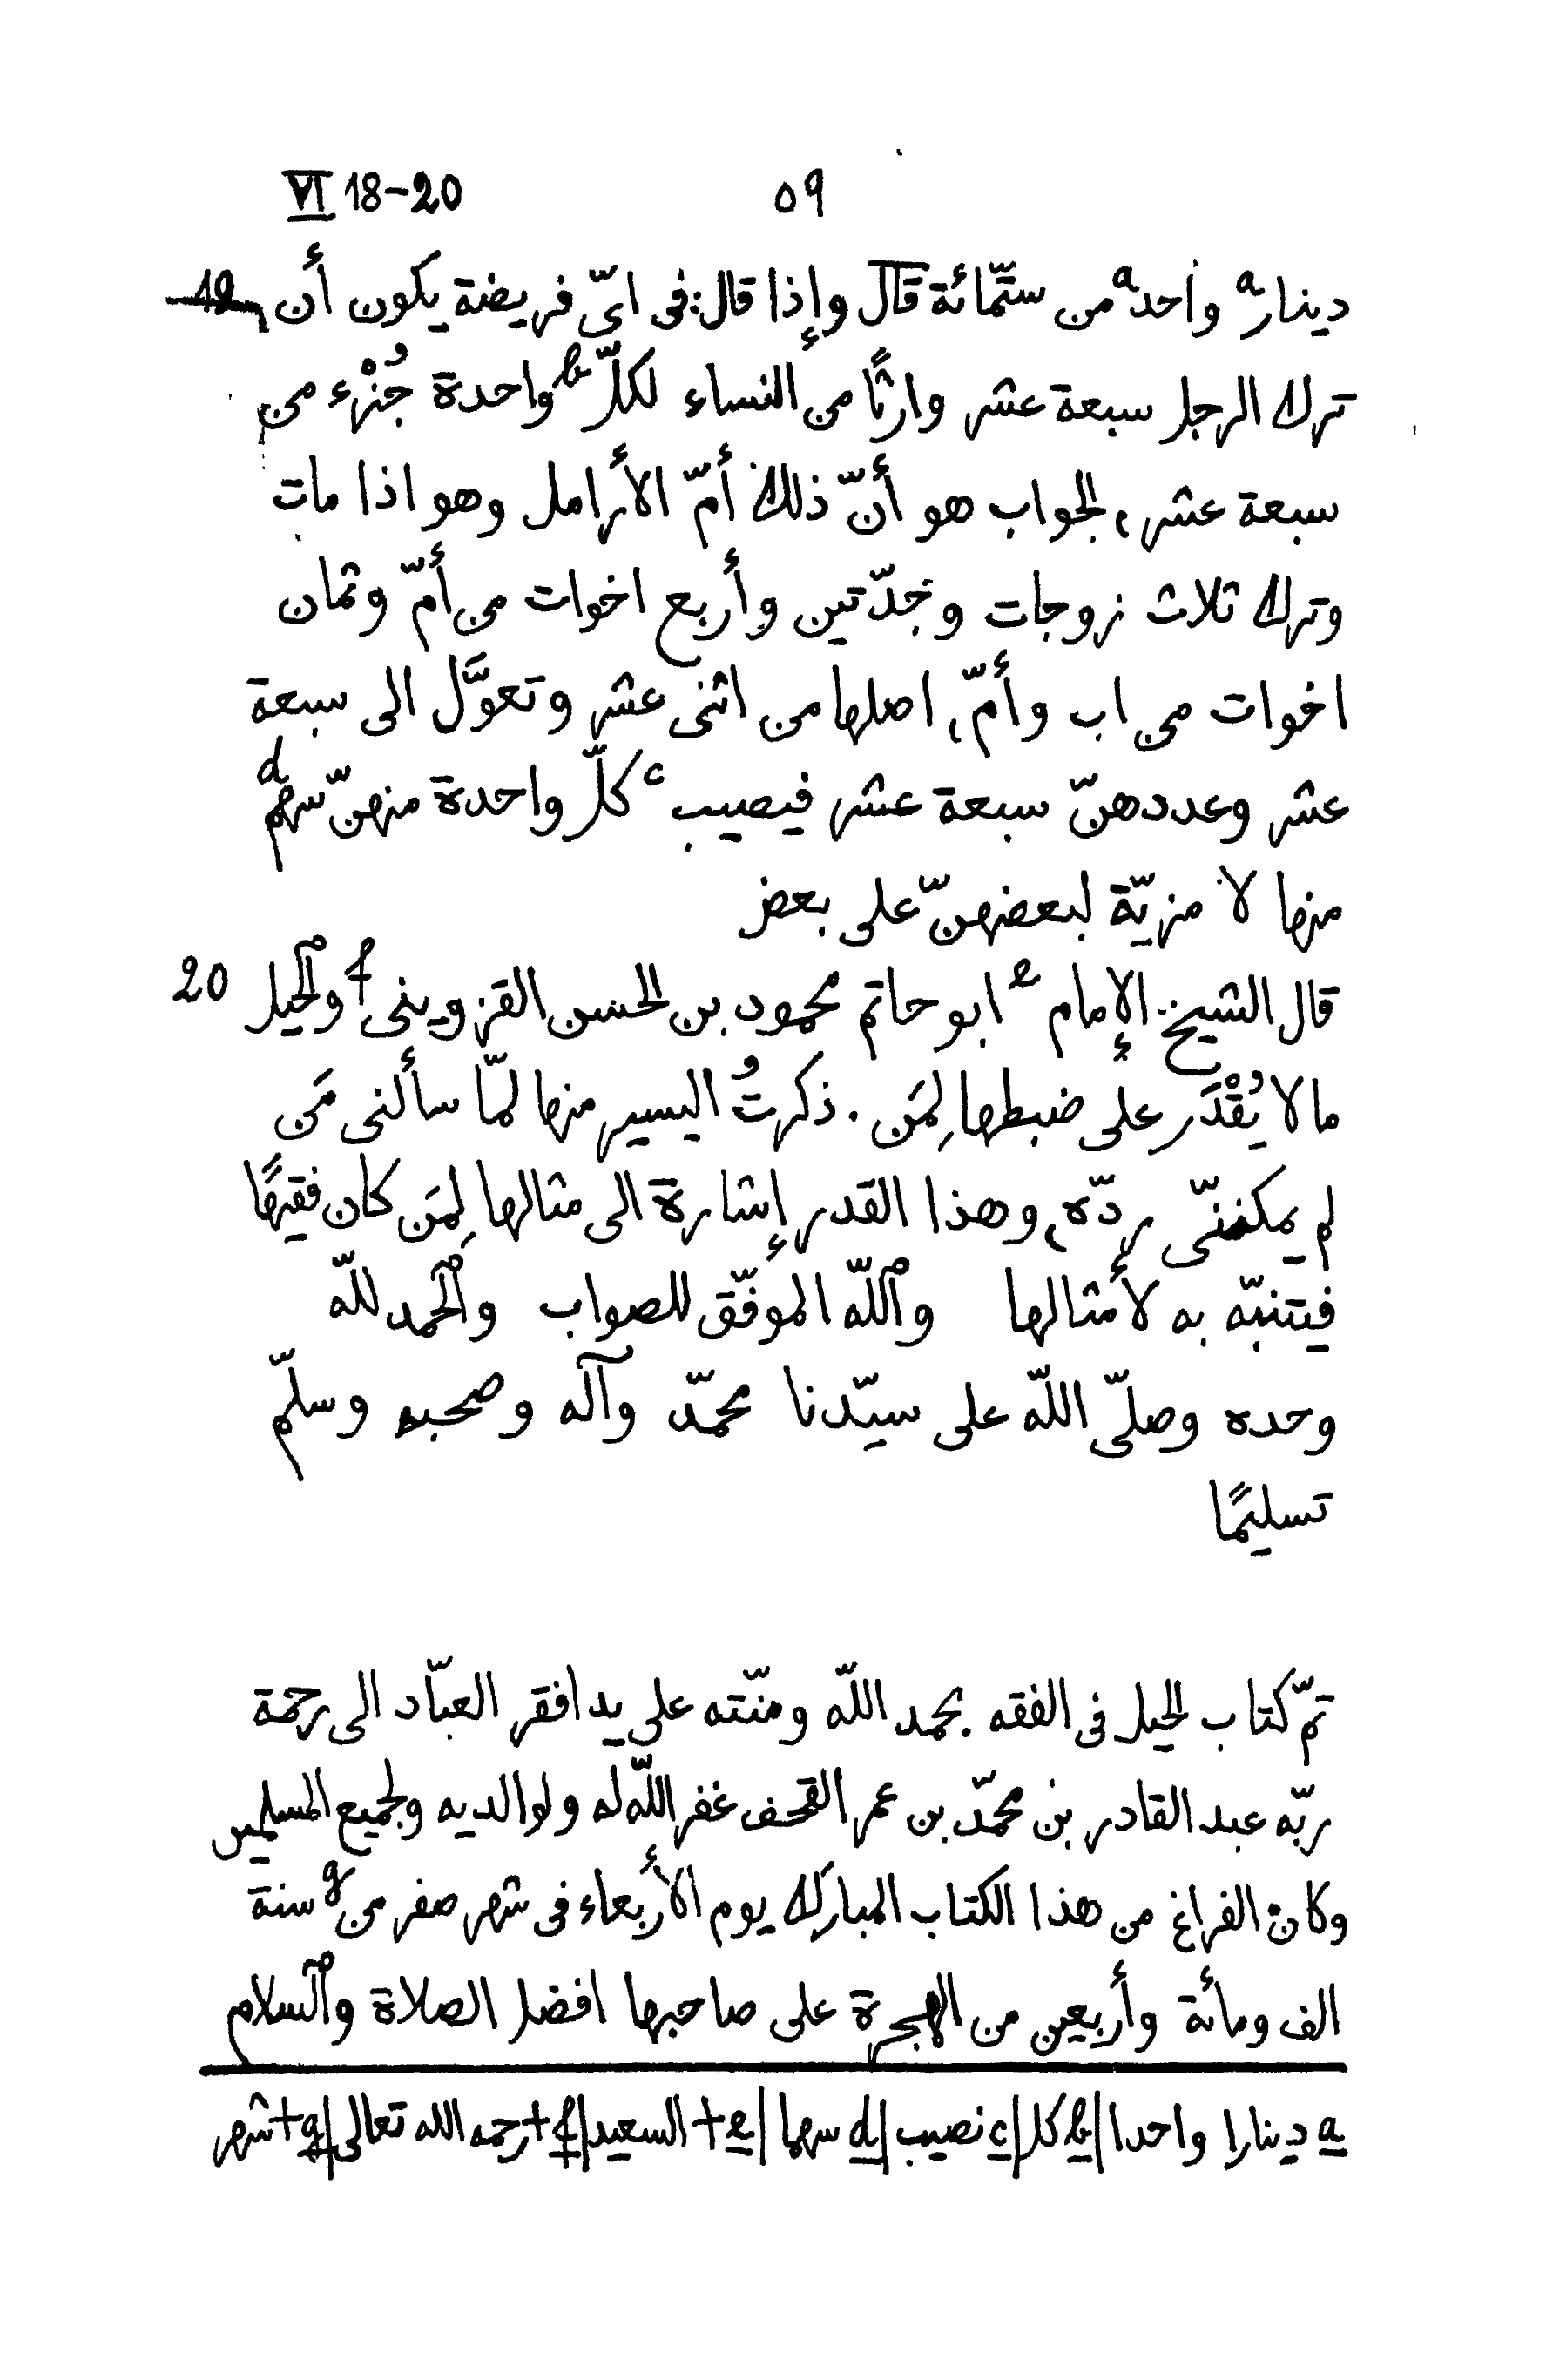 VI 18-20 ٥٩
دينارa واحدa من ستّمائة قال وإذا قال: فى اىّ فريضة يكون أن 19
ترك الرجل سبعة عشر وارثًا من النساء لكلّb واحدة جُزْء من
سبعة عشر، الجواب هو أنّ ذلك أمّ الأرامل وهو اذا مات
وترك ثلاث زوجات وجدّتين وأربع اخوات من أمّ وثمان
اخوات من اب وأمّ، اصلها من اثنى عشر وتعوَّل الى سبعة
عشر وعددهنّ سبعة عشر فيصيبc كلّ واحدة منهنّ سهمd
منها لا مزيّة لبعضهنّ على بعض
قال الشيخ الإمامe ابو حاتم محمود بن الحسن القزوينىf وٱلحيل 20
ما لا يُقْدَر على ضبطها لِمَن . ذكرتُ اليسير منها لمّا سألنى مَن
لم يمكننّى ردّه، وهذا القدر إشارة الى مثالها لِمَن كان فقيهًا
فيتنبّه به لأمثالها وٱللّه الموفّق للصواب وٱلحمد للّه
وحده وصلّى اللّه على سيّدنا محمّد وآله وصحبه وسلّم
تسليمًا
تمّ كتاب الحيل فى الفقه بحمد اللّه ومنّته على يد افقر العبّاد الى رحمة
ربّه عبد القادر بن محمّد بن عمر القحف غفر اللّه له ولوالديه ولجميع المسلمين
وكان الفراغ من هذا الكتاب المبارك يوم الأربعاء فى شهر صفر منg سنة
الف ومأئة وأربعين من الهجرة على صاحبها افضل الصلاة وٱلسلام
a دينارا واحدا | b كل | c نصيب | d سهما | e + السعيد | f + رحمه الله تعالى | g + شهر